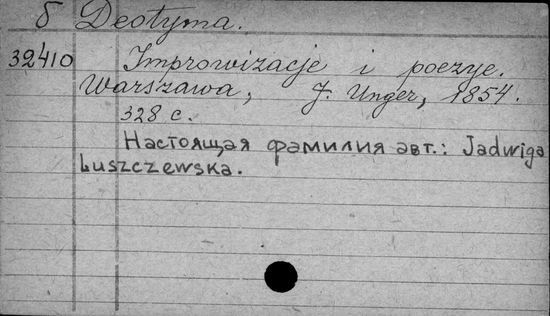 б Deotyma.
32410 Improwizacje i poezye.
Warszawa, J. Unger, 1854.
328 с.
Настоящая фамилия авт.: Jadwiga
Luszczewska.